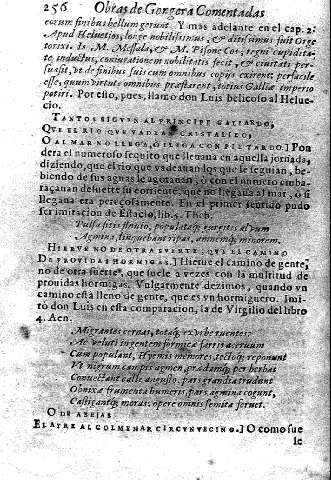 256 Obras de Gongora Comentadas
eorum finibus bellum gerunt. Y mas adelante en el cap. 2.
Apud Heluetios, longe nobilissimus, & ditissimus fuit Orge
torixi. Is M. Messala, & M. Pisone Cos, regni cupidita-
te inductus, coniurationem nobilitatis fecit, & ciuitati per-
suasit, vt de finibus suis cum omnibus copijs exirent; perfacile
esse, quum virtute omnibus præstarent, totius Galliæ imperio
potiri. Por esto, pues, llamo don Luis belicoso al Heluecio.
cio.
TANTOS SIGVEN AL PRINCIPE GALLARDO,
QVE EL RIO QVE VADEAN CRISTALINO,
O AL MAR NO LLEGA, O LLEGA CON PIE TARDO.] Pon
dera el numeroso sequito que lleuaua en aquella jornada,
diziendo, que el rio que vadeauan los que le seguian, be-
biendo de sus aguas le agotauan, ò con el numero emba-
raçauan de suerte su corriente, que no llegaua al mar, ò si
llegaua era pereçosamente. En el primer sentido pudo
ser imitacion de Estacio, lib. 5. Theb.
Agmina, linquebant ripas, amnemque minorem.
HIERVE NO DE OTRA SVERTE, QVE EL CAMINO
DE PROVIDAS HORMIGAS.] Hierue el camino de gente,
no de otra suerte, que suele a vezes con la multitud de
prouidas hormigas. Vulgarmente dezimos, quando vn
camino està lleno de gente, que es vn hormiguero. Imi-
tò don Luis en esta comparacion, la de Virgilio del libro
4. Aen.
Migrantes cernas, totaq, ex vrbe ruentes:
Ac veluti ingentem formicæ farris aceruum
Cum populant, Hyemis memores, tectoq, reponunt
It nigrum campis agmen, prædamq, per herbas
Conuectant calle angusto. pars grandia trudunt
Obnixæ frumenta humeris, pars agmina cogunt,
Castigantq, moras: opere omnis semita feruet.
O DE ABEJAS
EL AYRE AL COLMENAR CIRCVNVECINO.] O como sue
le